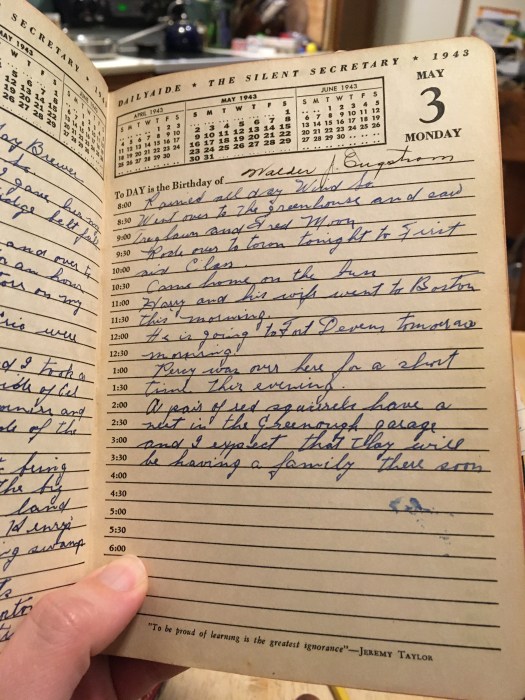 SECRETARY ★ 19
MAY 1943
W T F S
DAILYAIDE ★ THE SILENT SECRETARY ★ 1943
APRIL 1943
S M T W T F S
1 2 3
4 5 6 7 8 9 10
11 12 13 14 15 16 17
18 19 20 21 22 23 24
25 26 27 28 29 30
MAY 1943
S M T W T F S
1
2 3 4 5 6 7 8
9 10 11 12 13 14 15
16 17 18 19 20 21 22
23 24 25 26 27 28 29
30 31
JUNE 1943
S M T W T F S
1 2 3 4 5
6 7 8 9 10 11 12
13 14 15 16 17 18 19
20 21 22 23 24 25 26
27 28 29 30
MAY
3
MONDAY
To DAY is the Birthday of Walder J. Engstrom
8:00 Rained all day Wind So
8:30 Went over to the greenhouse and saw
9:00 and Fred Moon
9:30 Rode over to town tonight to First
10:00 aid Class
10:30 Came home on the bus
11:00 Harry and his wife went to Boston
11:30 this morning.
12:00 He is going to Fort Devens tomorrow
12:30 morning.
1:00 Percy was over here for a short
1:30 time this evening.
2:00 A pair of red squirrels have a
2:30 nest in the Greenough garage
3:00 and I expect that they will
3:30 be having a family there soon
4:00
4:30
5:00
5:30
6:00
"To be proud of learning is the greatest ignorance"—JEREMY TAYLOR
Brewer
So
and over to
an hour
on my
were
I took a
and
of the
being
the big
land
Henry
swamp